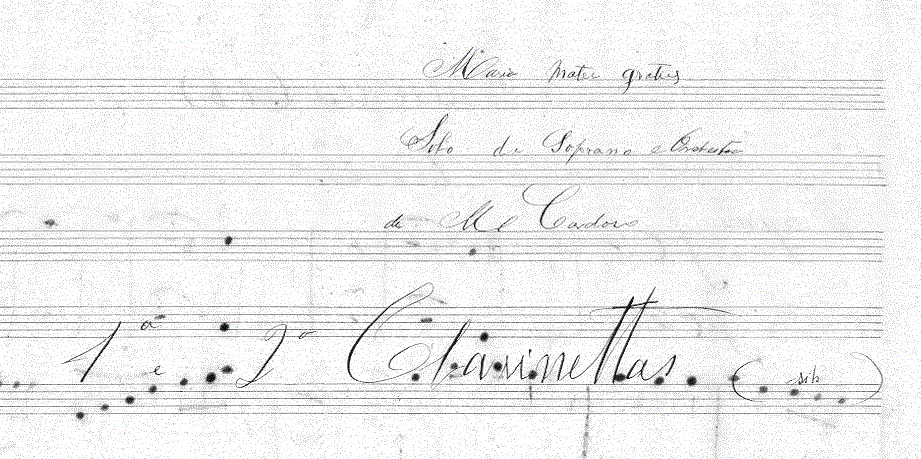 Maria Mater gratiæ
Solo de Soprano e Orchestra
de Ml Cardoso
1ª e 2ª Clarinettas (sib)